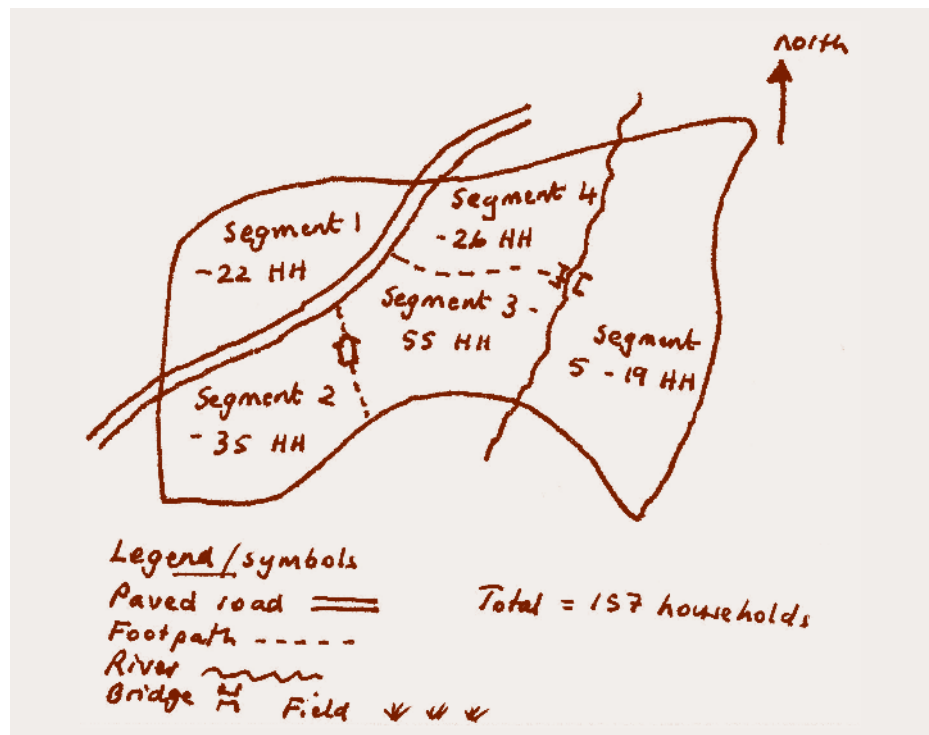 north
Segment 1
- 22 HH
Segment 4
- 26 HH
Segment 3 -
55 HH
Segment
5 - 19 HH
Segment 2
- 35 HH
Legend / symbols
Paved road
Footpath
River
Bridge
Field
Total = 157 households